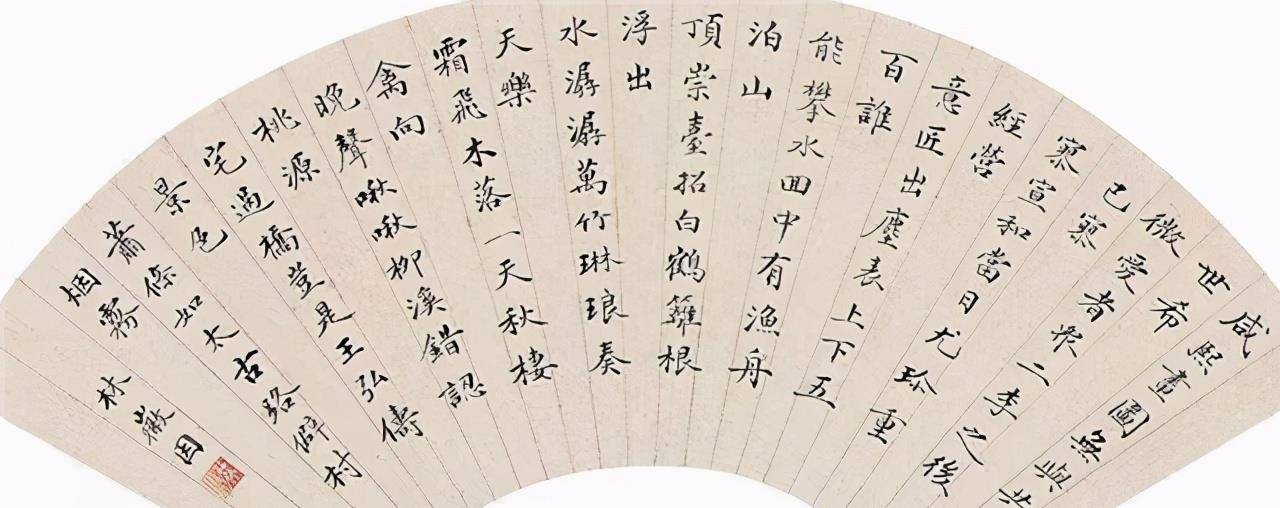 咸熙畫圖無與共
世希
微愛者眾二李之後
已寡
寡宣和當日尤珍重
經營
意匠出塵表上下五
百誰
能攀水回中有漁舟
泊山
頂崇臺招白鶴籬根
浮出
水潺潺萬竹琳琅奏
天樂
霜飛木落一天秋棲
禽向
晚聲啾啾柳溪錯認
桃源
宅過橋豈是王弘儔
景色
蕭條如太古路僻村
烟霧
林徽因